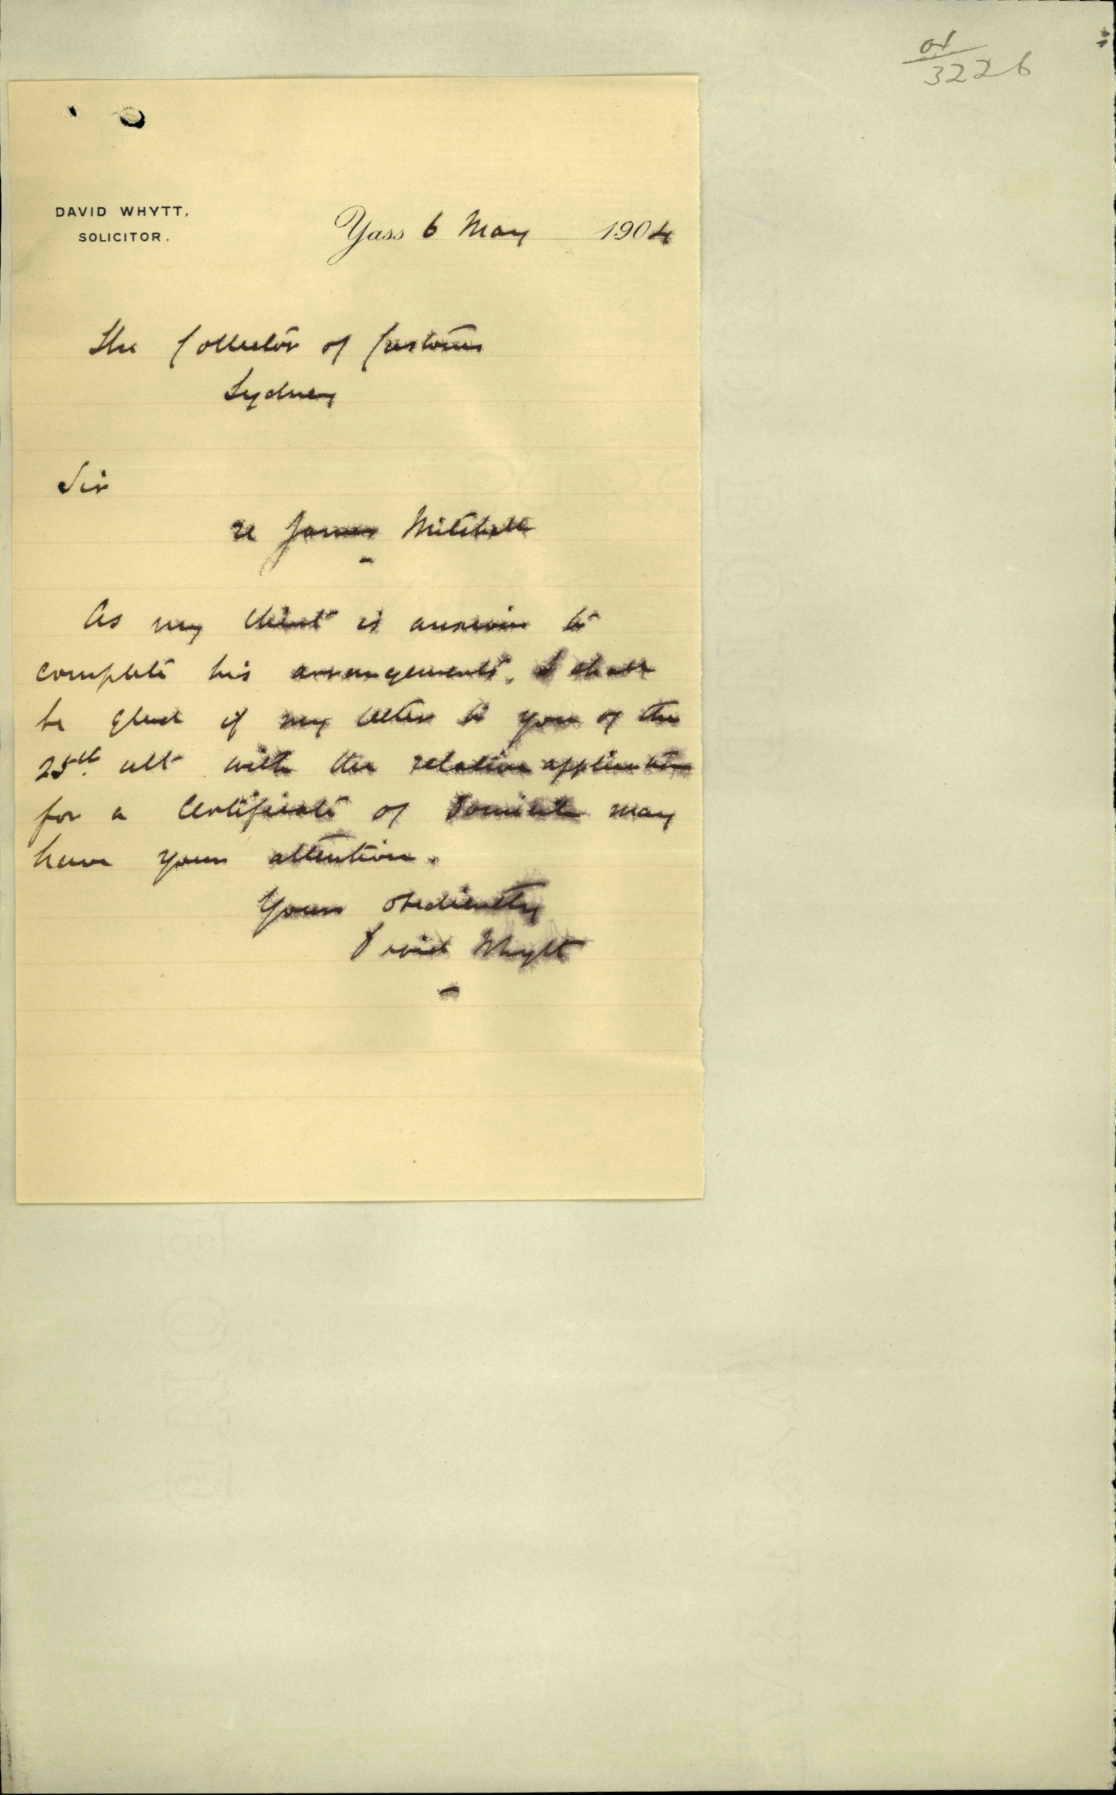 04
3226
DAVID WHYTT,
SOLICITOR.
Yass 6 May 1904
The Collector of Customs
Sydney
Sir
re James Mitchell
As my client is anxious to
complete his arrangements, I shall
be glad if my letter to you of the
25th ult with the relative application
for a Certificate of Domicile may
have your attention.
Yours obediently
David Whytt